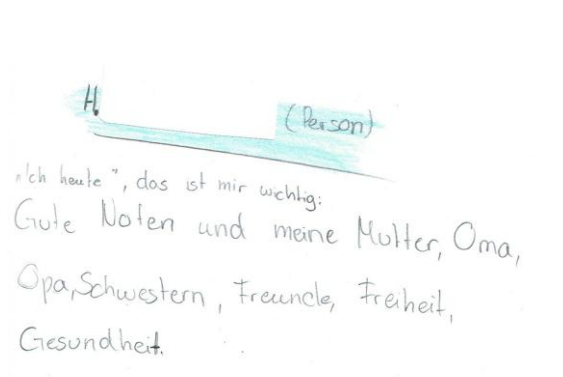 H.
(Person)
„Ich heute", das ist mir wichtig:
Gute Noten und meine Mutter, Oma,
Opa, Schwestern, Freunde, Freiheit,
Gesundheit.